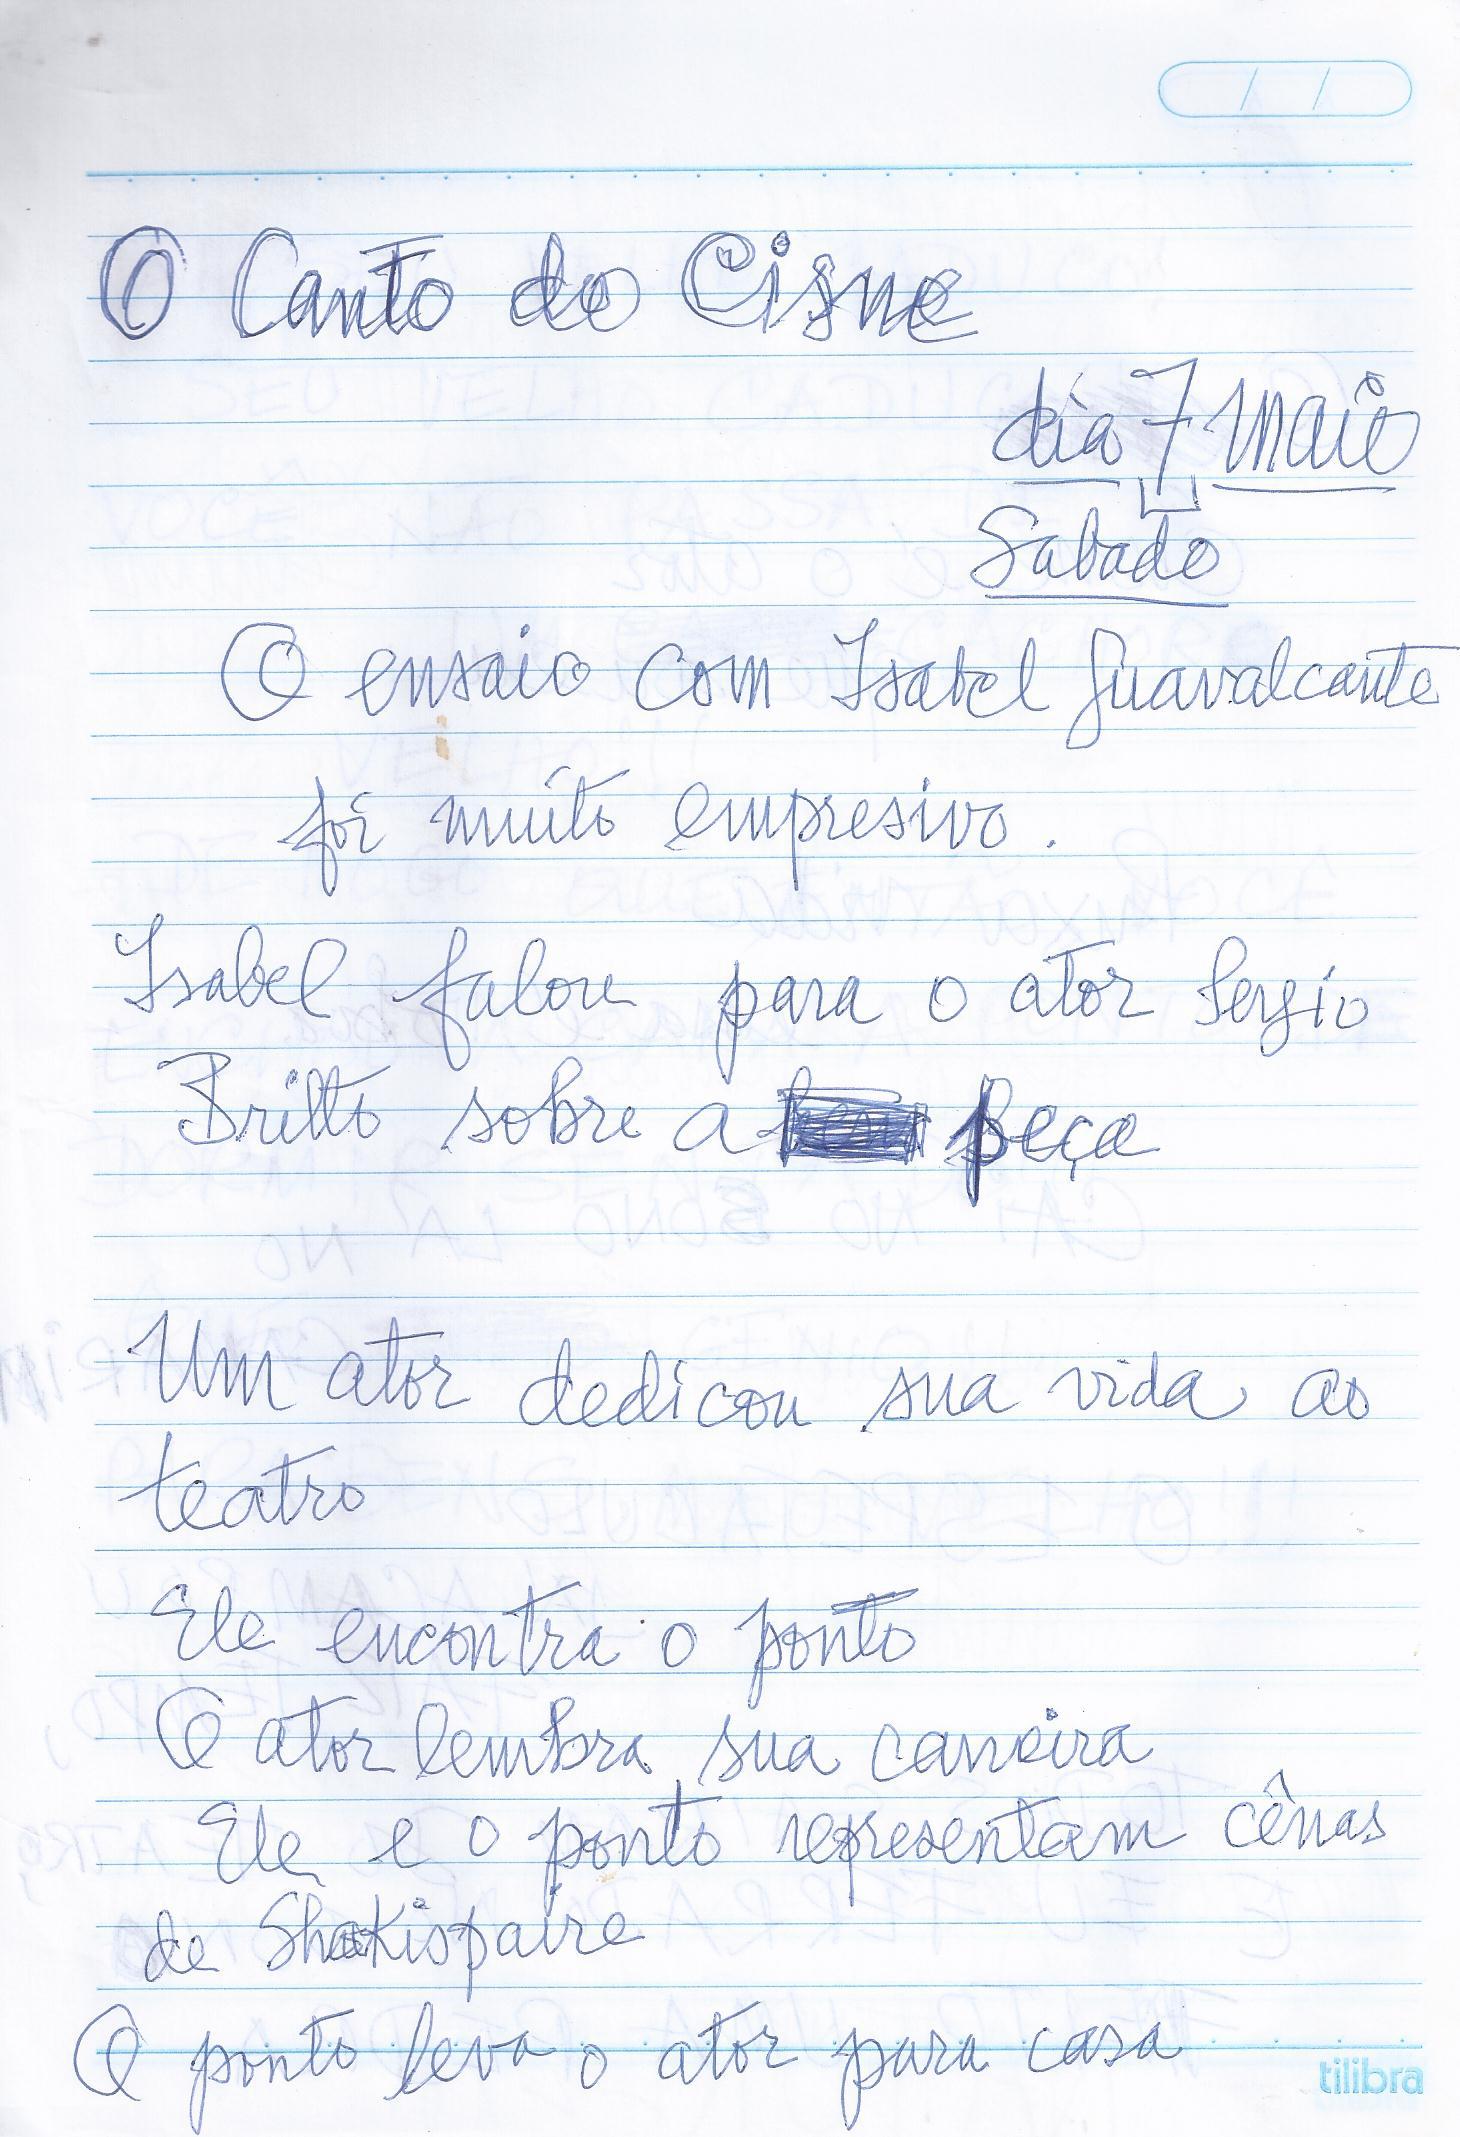 O Canto do Cisne
dia 7 maio
Sabado
O ensaio com Isabel Guavalcante
foi muito empresivo.
Isabel falou para o ator Sergio
Britto sobre a peça
Um ator dedicou sua vida ao
teatro
Ele encontra o ponto
O ator lembra sua carreira
Ele e o ponto representam cênas
de Shakispaire
O ponto leva o ator para casa
tilibra